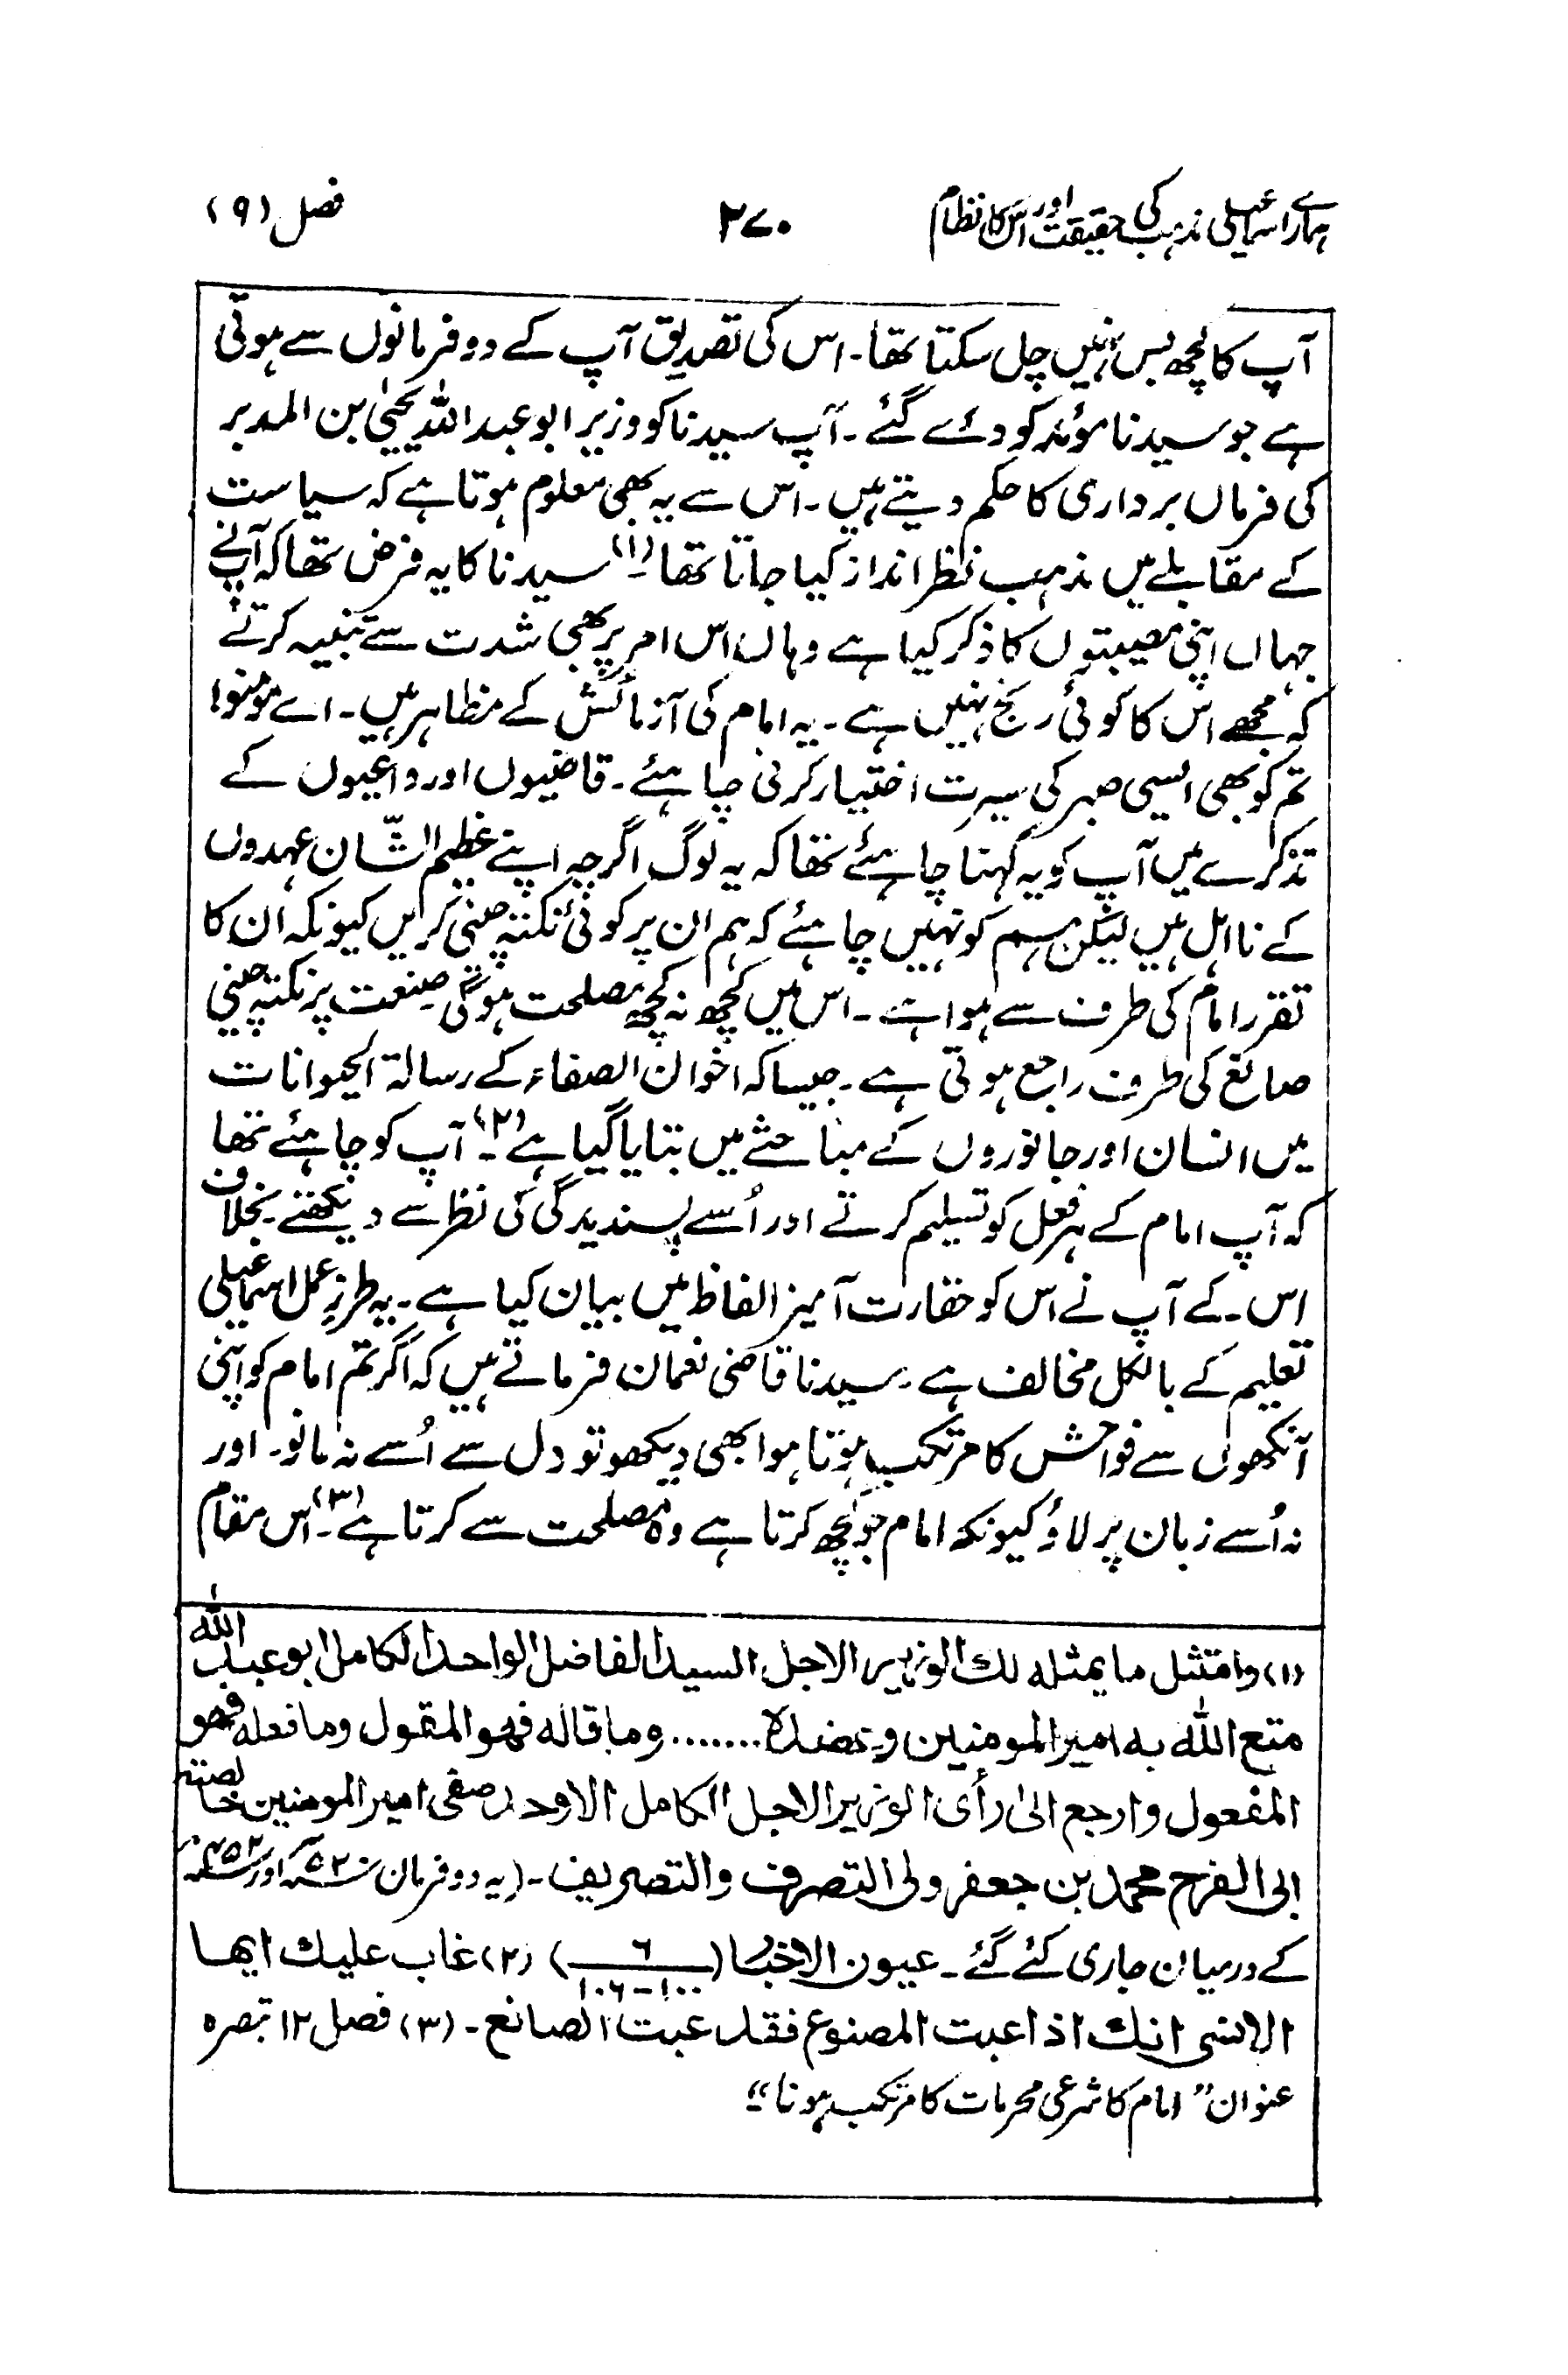 ہمارے اسماعیلی مذہب کی حقیقت اور اس کا نظام
۲۷۰
فصل (۹)
آپ کا کچھ بس نہیں چل سکتا تھا۔ اس کی تصدیق آپ کے دو فرمانوں سے ہوتی
ہے جو سیدنا مؤید کو دئے گئے۔ آپ سیدنا کو وزیر ابو عبد اللہ یحییٰ بن المدبر
کی فرماں برداری کا حکم دیتے ہیں۔ اس سے یہ بھی معلوم ہوتا ہے کہ سیاست
کے مقابلے میں مذہب نظر انداز کیا جاتا تھا۔(۱) سیدنا کا یہ فرض تھا کہ آپنے
جہاں اپنی مصیبتوں کا ذکر کیا ہے وہاں اس امر پر بھی شدت سے تنبیہ کرتے
کہ مجھے اس کا کوئی رنج نہیں ہے۔ یہ امام کی آزمائش کے مظاہر ہیں۔ اے مومنو!
تم کو بھی ایسی صبر کی سیرت اختیار کرنی چاہئے۔ قاضیوں اور داعیوں کے
تذکرے میں آپ کو یہ کہنا چاہئے تھا کہ یہ لوگ اگرچہ اپنے عظیم الشّان عہدوں
کے نا اہل ہیں لیکن ہم کو نہیں چاہئے کہ ہم ان پر کوئی نکتہ چینی کریں کیونکہ ان کا
تقرر امام کی طرف سے ہوا ہے۔ اس میں کچھ نہ کچھ مصلحت ہوگی صنعت پر نکتہ چینی
صانع کی طرف راجع ہوتی ہے۔ جیسا کہ اخوان الصفاء کے رسالۃ الحیوانات
میں انسان اور جانوروں کے مباحثے میں بتایا گیا ہے۔(۲) آپ کو چاہئے تھا
کہ آپ امام کے ہر فعل کو تسلیم کرتے اور اُسے پسندیدگی کی نظر سے دیکھتے بخلاف
اس۔ کے آپ نے اس کو حقارت آمیز الفاظ میں بیان کیا ہے۔ یہ طرزِ عمل اسماعیلی
تعلیم کے بالکل مخالف ہے۔ سیدنا قاضی نعمان فرماتے ہیں کہ اگر تم امام کو اپنی
آنکھوں سے فواحش کا مرتکب ہوتا ہوا بھی دیکھو تو دل سے اُسے نہ مانو۔ اور
نہ اُسے زبان پر لاؤ کیونکہ امام جو کچھ کرتا ہے وہ مصلحت سے کرتا ہے۔(۳) اس مقام
(۱) وامتثل ما یمثلہ لك الوزیر الاجل السید الفاضل الواحد الکامل ابو عبد اللہ
متع اللہ بہ امیر المومنین وعضدہ ....... وما قالہ فھو المقول وما فعلہ فھو
المفعول وارجع الیٰ رأی الوزیر الاجل الکامل الاوحد صفی امیر المومنین خالصتہ
ابی الفرج محمد بن جعفر ولی التصرف والتصریف۔ (یہ دو فرمان سنہ ۴۵۲ اور سنہ ۴۵۳
کے درمیان جاری کئے گئے۔ عیون الاخبار (۶ / ۱۰۰-۱۰۶) (۲) غاب علیك ایھا
الانسی انك اذا عبت المصنوع فقد عبت الصانع۔ (۳) فصل ۱۲ تبصرہ
عنوان ”امام کا شرعی محرمات کا مرتکب ہونا“